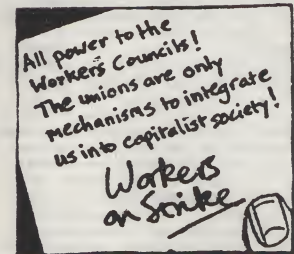 All power to the
Workers Councils!
The unions are only
mechanisms to integrate
us into capitalist society!
Workers
on Strike